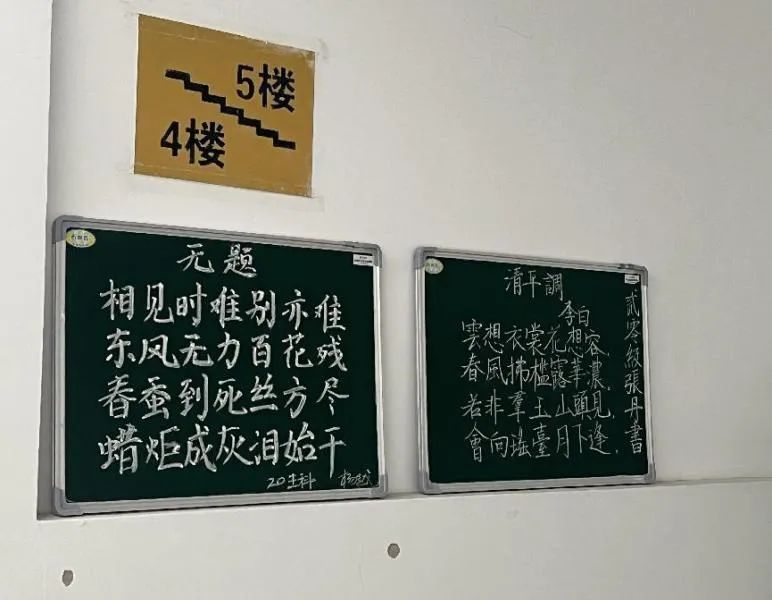 5楼
4楼
无题
相见时难别亦难
东风无力百花残
春蚕到死丝方尽
蜡炬成灰泪始干
20生科
清平調
李白
雲想衣裳花想容
春風拂檻露華濃.
若非羣玉山頭見
會向瑤臺月下逢.
貳零級張丹書